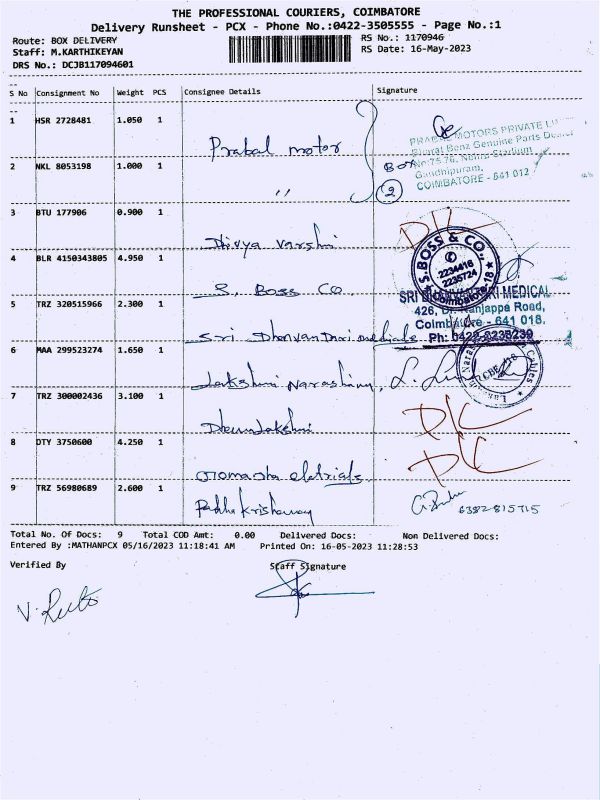 THE PROFESSIONAL COURIERS, COIMBATORE
Delivery Runsheet - PCX - Phone No.:0422-3505555 - Page No.:1
Route: BOX DELIVERY
RS No.: 1170946
Staff: M.KARTHIKEYAN
RS Date: 16-May-2023
DRS No.: DCJB117094601
S No Consignment No Weight PCS Consignee Details Signature
1 HSR 2728481 1.050 1
Prabal motor
PRABAL MOTORS PRIVATE
Bharat Benz Genuine Parts Dealer
No:75,76, Nehru Stadium
Gandhipuram,
COIMBATORE - 641 012
2 NKL 8053198 1.000 1
,,
Box
2
3 BTU 177906 0.900 1
Divya Varshni
D/C
4 BLR 4150343805 4.950 1
S. Boss Co
S.BOSS & CO.,
2234416
2235724
Coimbatore-18
5 TRZ 320515966 2.300 1
Sri Dhanvanthri medicals
SRI DHANVANTRI MEDICAL
426, Dr. Nanjappa Road,
Coimbatore - 641 018.
Ph: 0422-2235239
6 MAA 299523274 1.650 1
Lakshmi Narashimy
CBE-18
7 TRZ 300002436 3.100 1
Dhanalakshmi
D/C
8 DTY 3750600 4.250 1
D/C
9 TRZ 56980689 2.600 1
Radha Krishanay
6382815715
Total No. Of Docs: 9 Total COD Amt: 0.00 Delivered Docs: Non Delivered Docs:
Entered By :MATHANPCX 05/16/2023 11:18:41 AM Printed On: 16-05-2023 11:28:53
Verified By
Staff Signature